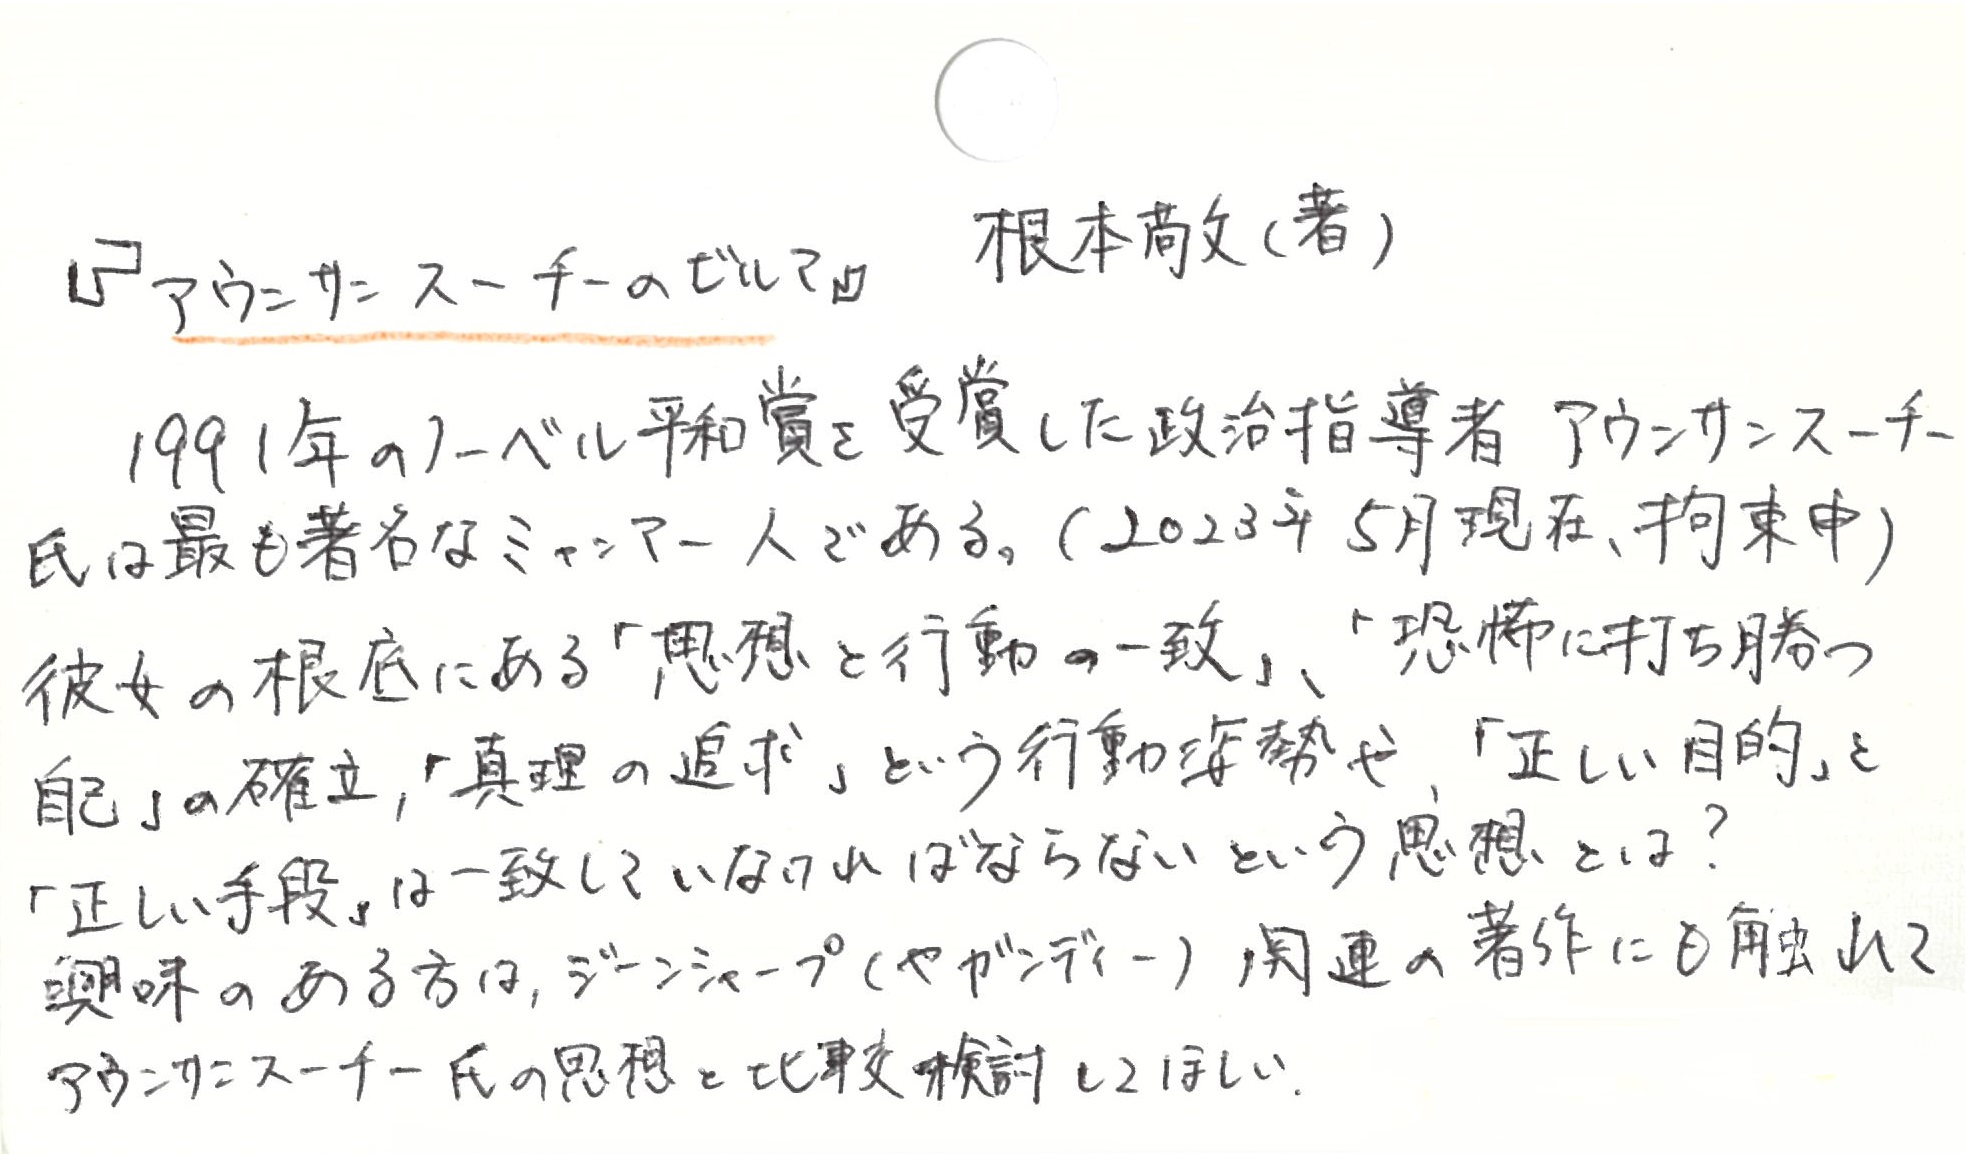 『アウンサンスーチーのビルマ』 根本敬(著)
1991年のノーベル平和賞を受賞した政治指導者 アウンサンスーチー
氏は最も著名なミャンマー人である。(2023年5月現在、拘束中)
彼女の根底にある「思想と行動の一致」、「恐怖に打ち勝つ
自己」の確立,「真理の追求」という行動姿勢や、「正しい目的」と
「正しい手段」は一致していなければならないという思想とは?
興味のある方は,ジーンシャープ(やガンディー)関連の著作にも触れて
アウンサンスーチー氏の思想と比較検討してほしい.